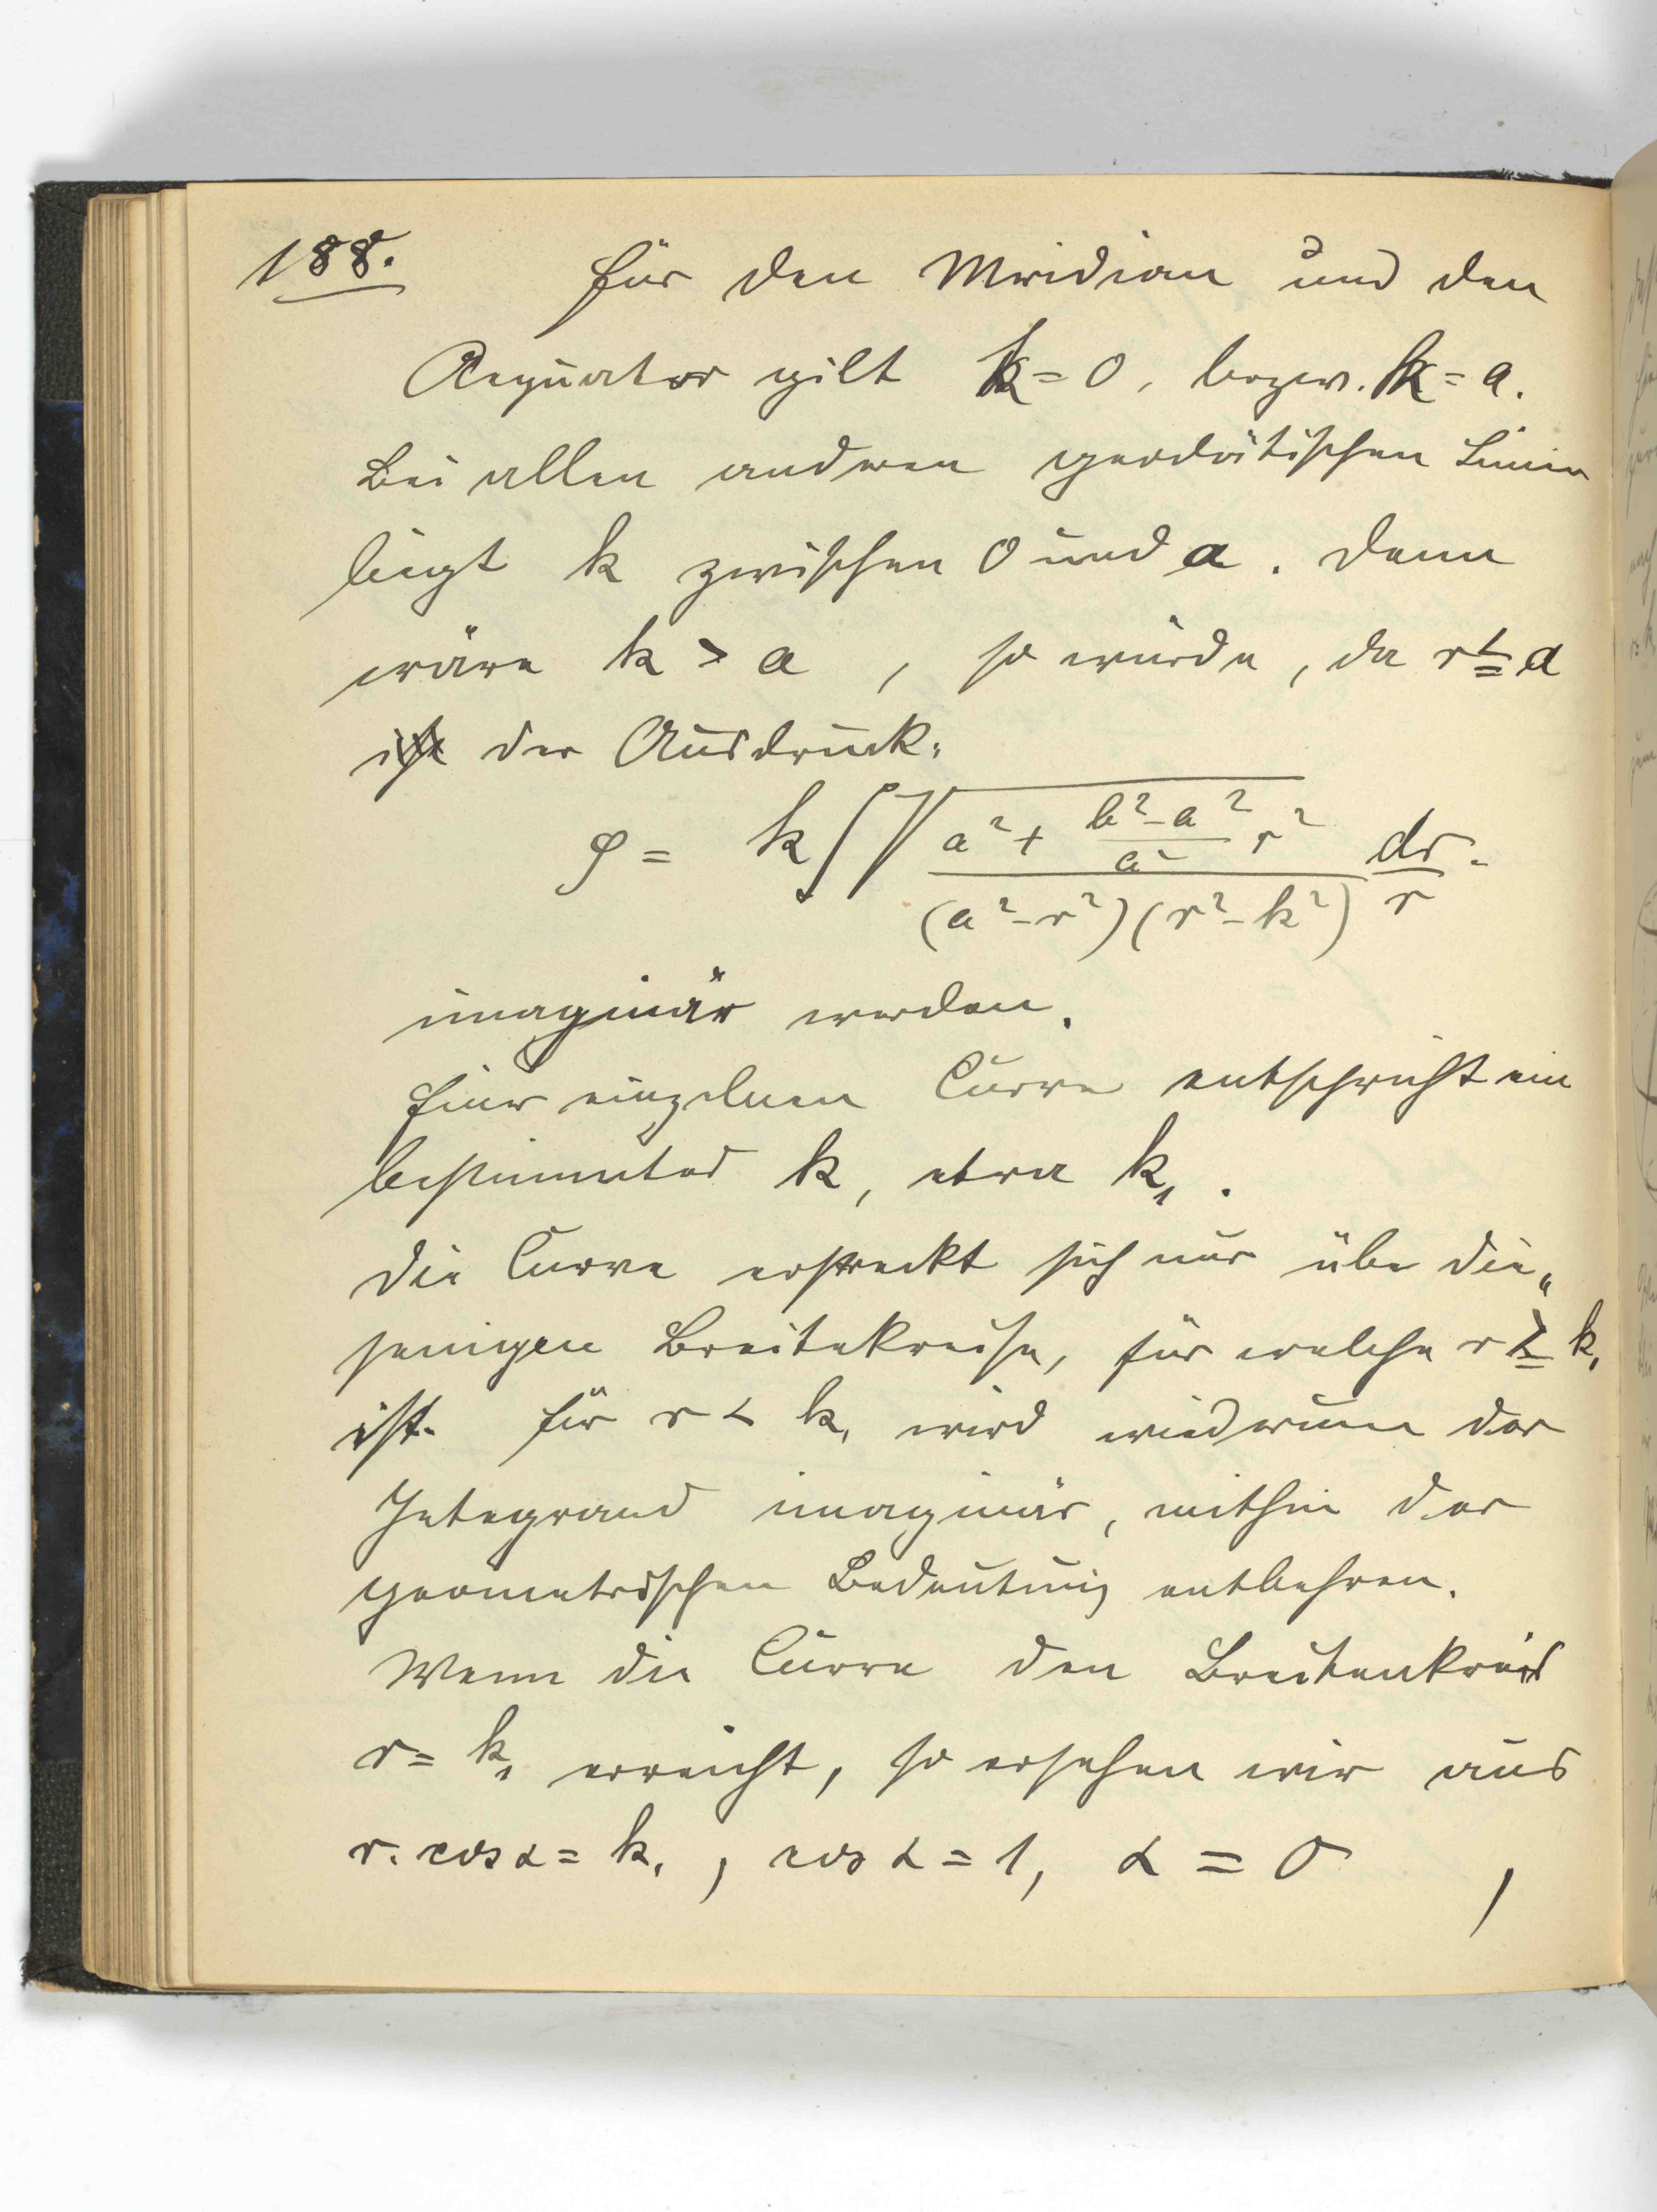 188. Für den Meridian und den
Aequator gilt k = 0, bezw. k = a.
Bei allen anderen geodätischen Linien
liegt k zwischen 0 und a. Denn
wäre k > a, so würde, da r ≦ a
ist der Ausdruck:
φ = k ∫ √ (a² + (b² - a²)/a² r²) / ((a² - r²)(r² - k²)) dr/r.
imaginär werden.
Einer einzelnen Curve entspricht ein
bestimmtes k, etwa k₁.
Die Curve erstreckt sich nur über die„
jenigen Breitekreise, für welche r ≧ k₁
ist. Für r < k₁ wird wiederum der
Integrand imaginär, mithin der
geometrischen Bedeutung entbehren.
Wenn die Curve den Breitenkreis
r = k₁ erreicht, so ersehen wir aus
r. cos α = k₁, cos α = 1, α = 0,